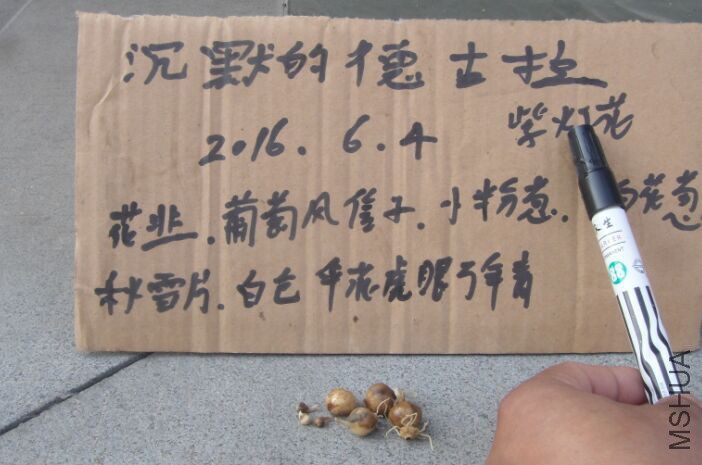 沉默的德古拉
2016.6.4 紫灯花
花韭.葡萄风信子.小粉葱. 花葱
秋雪片.白色 虎眼万年青
MSHUA